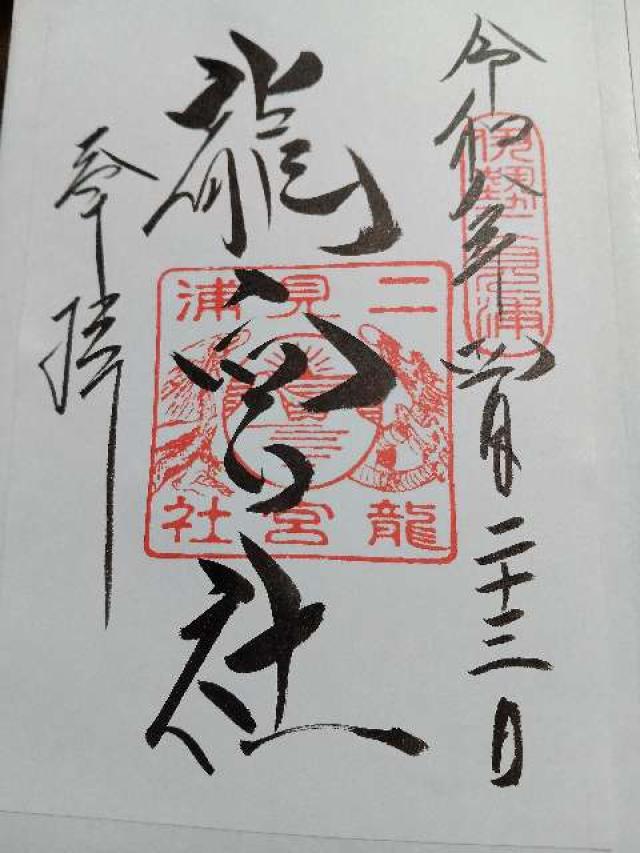 令和八年四月二十三日
伊勢二見浦
龍宮社
二見浦
龍宮社
奉拝